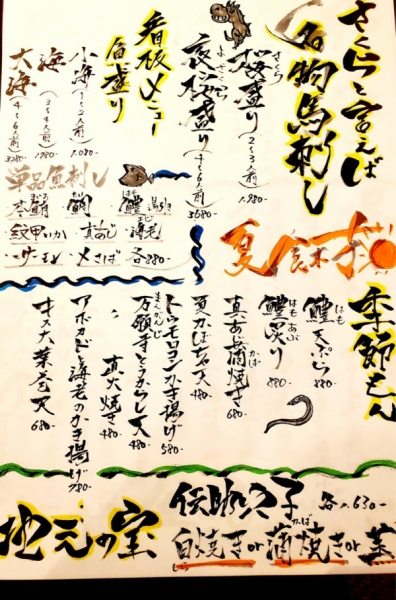 さくらと言えば
名物馬刺し
さくら
桜盛り(2〜3人前) 1,980-
よざくら
夜桜盛り(4〜6人前) 3,680-
看板メニュー
魚盛り
小海(1〜2人前) 1,080-
海(3〜4人前) 1,980-
大海(4〜6人前) 3,080-
単品魚刺し
鯛
鱧
海老
紋甲いか
真あじ
サーモン
〆さば
各880-
夏
季節もん
はも
鱧天ぷら 880-
はもあぶ
鱧炙り 880-
かば
真あじ蒲焼き 680-
夏かぼちゃ天 480-
トウモロコシかき揚げ 580-
まんがんじ
万願寺とうがらし天 480-
直火焼き 480-
アボカドと海老のかき揚げ 780-
キス大葉巻天 680-
地元の宝
伝助穴子 各1,630-
しら
白焼きor
かば
蒲焼きor